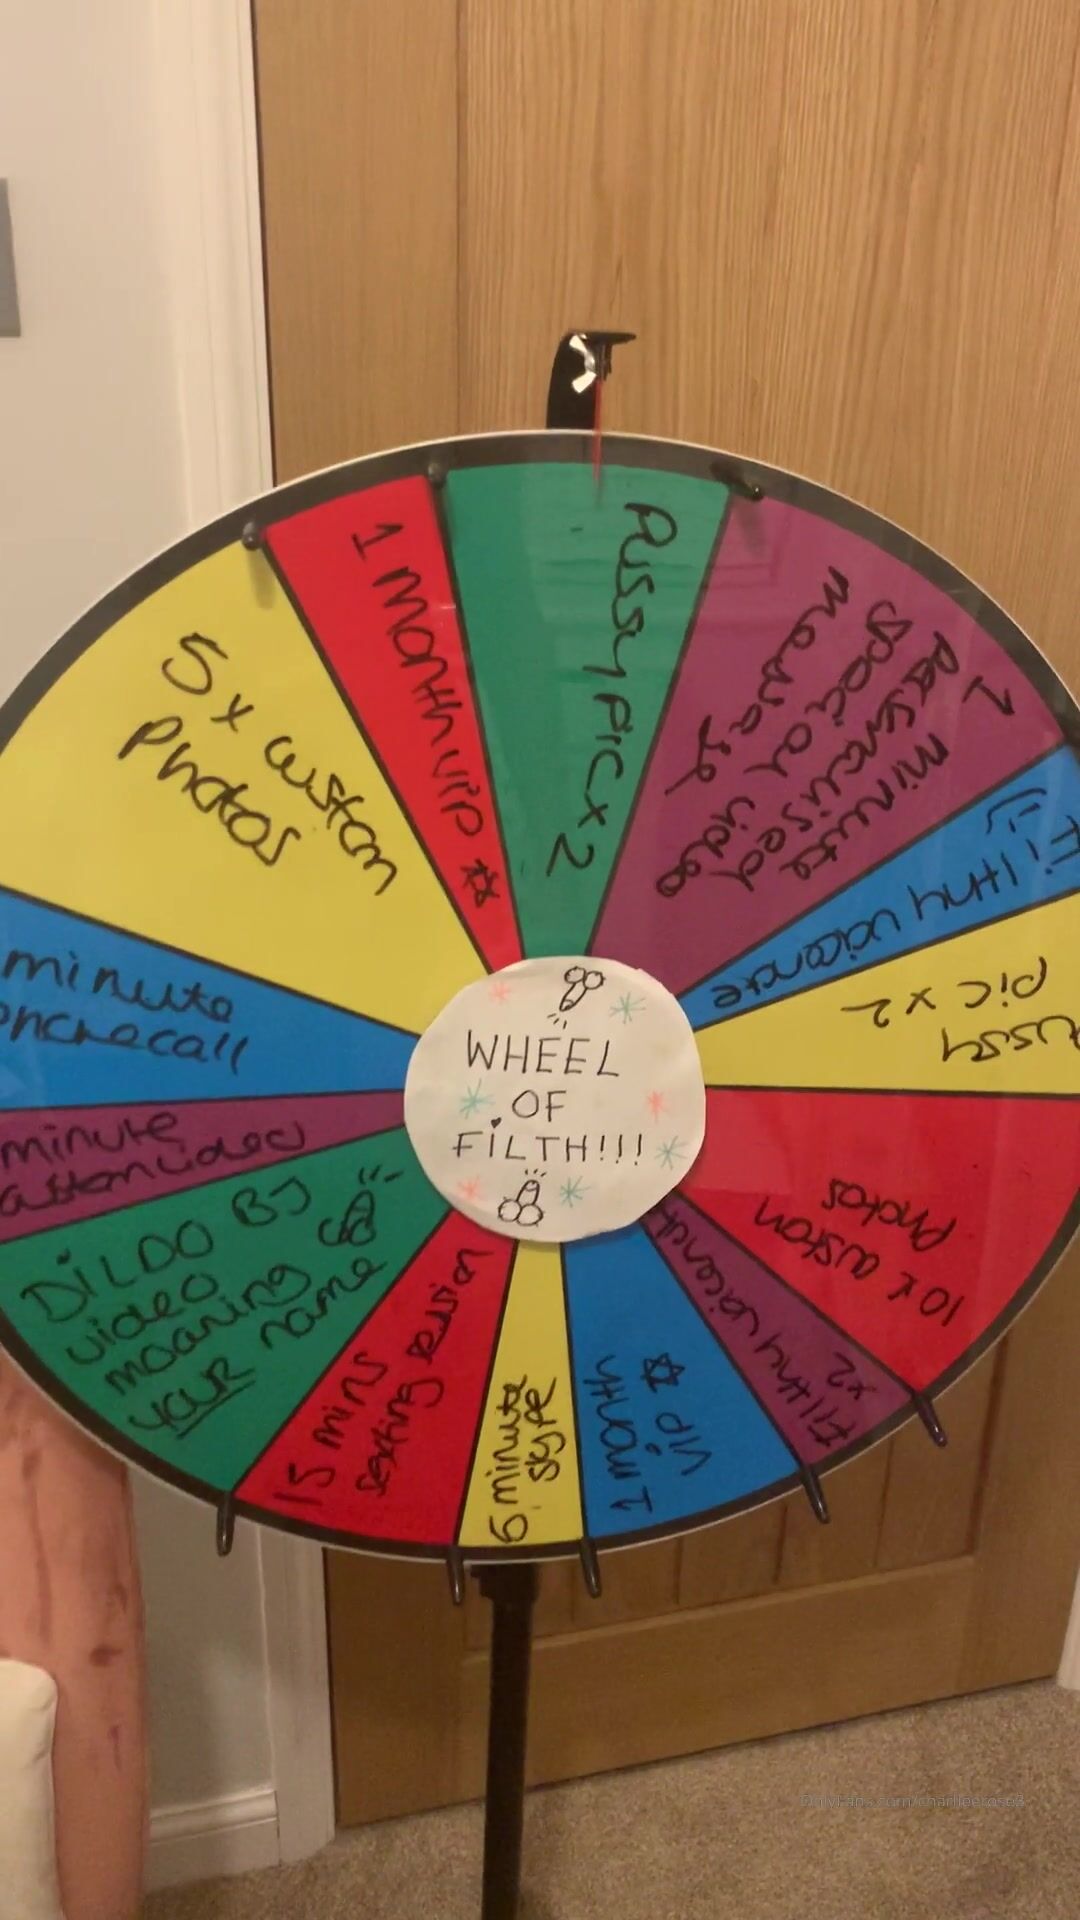 WHEEL
OF
FiLTH!!!
Pussy pic x 2
1
minute
personalised
special video
message
Filthy voicenote
Pussy
pic x 2
10 x custom
photos
Filthy voicenote
x2
1 month
vip
6 minute
skype
15 mins
sexting session
DiLDO BJ
video
moaning
your name
minute
custom video
minute
phonecall
5 x custom
photos
1 month vip
OnlyFans.com/charlieerose3